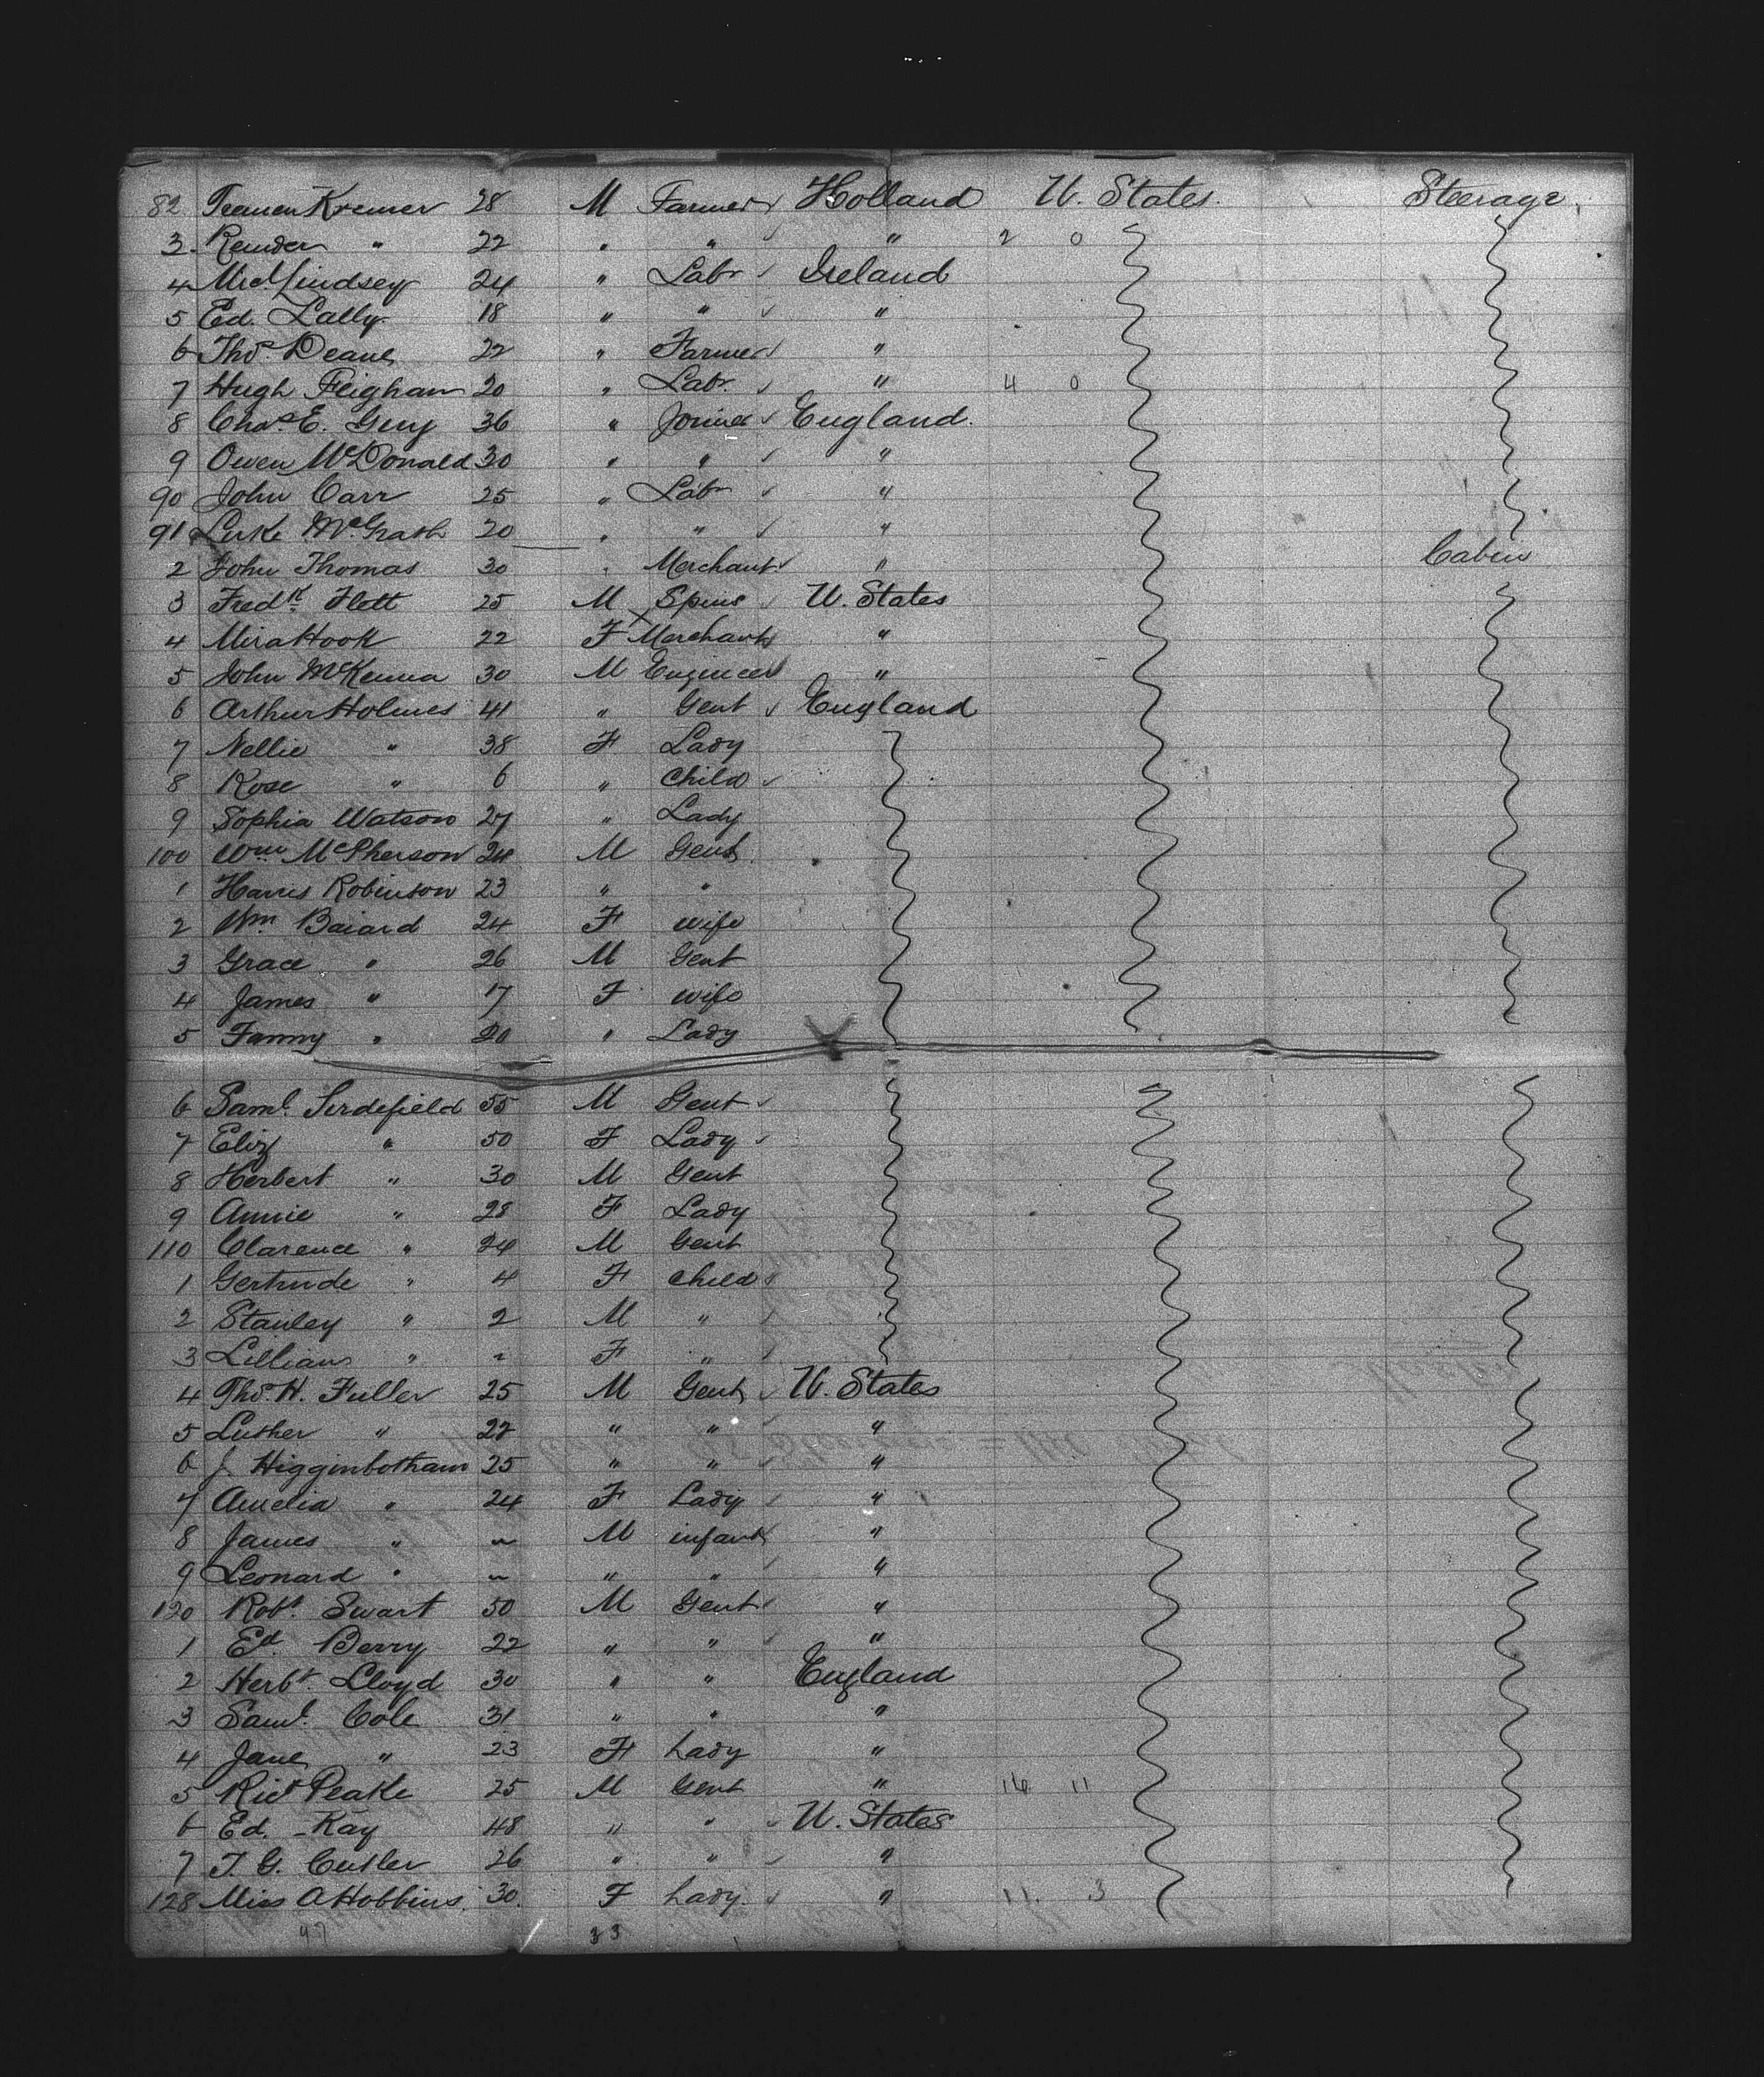 82 Teemen Kremer 28 M Farmer Holland U. States. Steerage
3 Reinder " 22 " " " 2 0
4 Micl. Lindsey 24 " Labr Ireland
5 Ed. Lally 18 " " "
6 Thos. Deane 22 " Farmer "
7 Hugh Feighan 20 " Labr. " 4 0
8 Chas. E. Guy 36 " Joiner England.
9 Owen McDonald 30 " " "
90 John Carr 25 " Labr "
91 Luke McGrath 20 " " "
2 John Thomas 30 " Merchant " Cabin
3 Fredk Flett 25 M Spins U. States
4 Mira Hook 22 F Merchant "
5 John McKenna 30 M Engineer "
6 Arthur Holmes 41 " Gent England
7 Nellie " 38 F Lady
8 Rose " 6 " Child
9 Sophia Watson 27 " Lady
100 Wm McPherson 24 M Gent
1 Harris Robinson 23 " "
2 Wm. Baiard 24 F wife
3 Grace " 26 M Gent
4 James " 17 F wife
5 Fanny " 20 " Lady
6 Saml. Serdefield 55 M Gent
7 Eliz " 50 F Lady
8 Herbert " 30 M Gent
9 Annie " 28 F Lady
110 Clarence " 24 M Gent
1 Gertrude " 4 F child
2 Stanley " 2 M "
3 Lillian " ~ F "
4 Thos. H. Fuller 25 M Gent U. States
5 Luther " 22 " " "
6 J. Higginbotham 25 " " "
7 Amelia " 24 F Lady "
8 James " ~ M infant "
9 Leonard " ~ " " "
120 Robt. Swart 50 M Gent "
1 Ed Berry 22 " " "
2 Herbt. Lloyd 30 " " England
3 Saml. Cole 31 " " "
4 Jane " 23 F Lady "
5 Ricd Peake 25 M Gent " 16 11
6 Ed. Kay 48 " " U. States
7 T. G. Cutler 26 " " "
128 Miss A Hobbins. 30. F Lady. " 11. 3
47 33